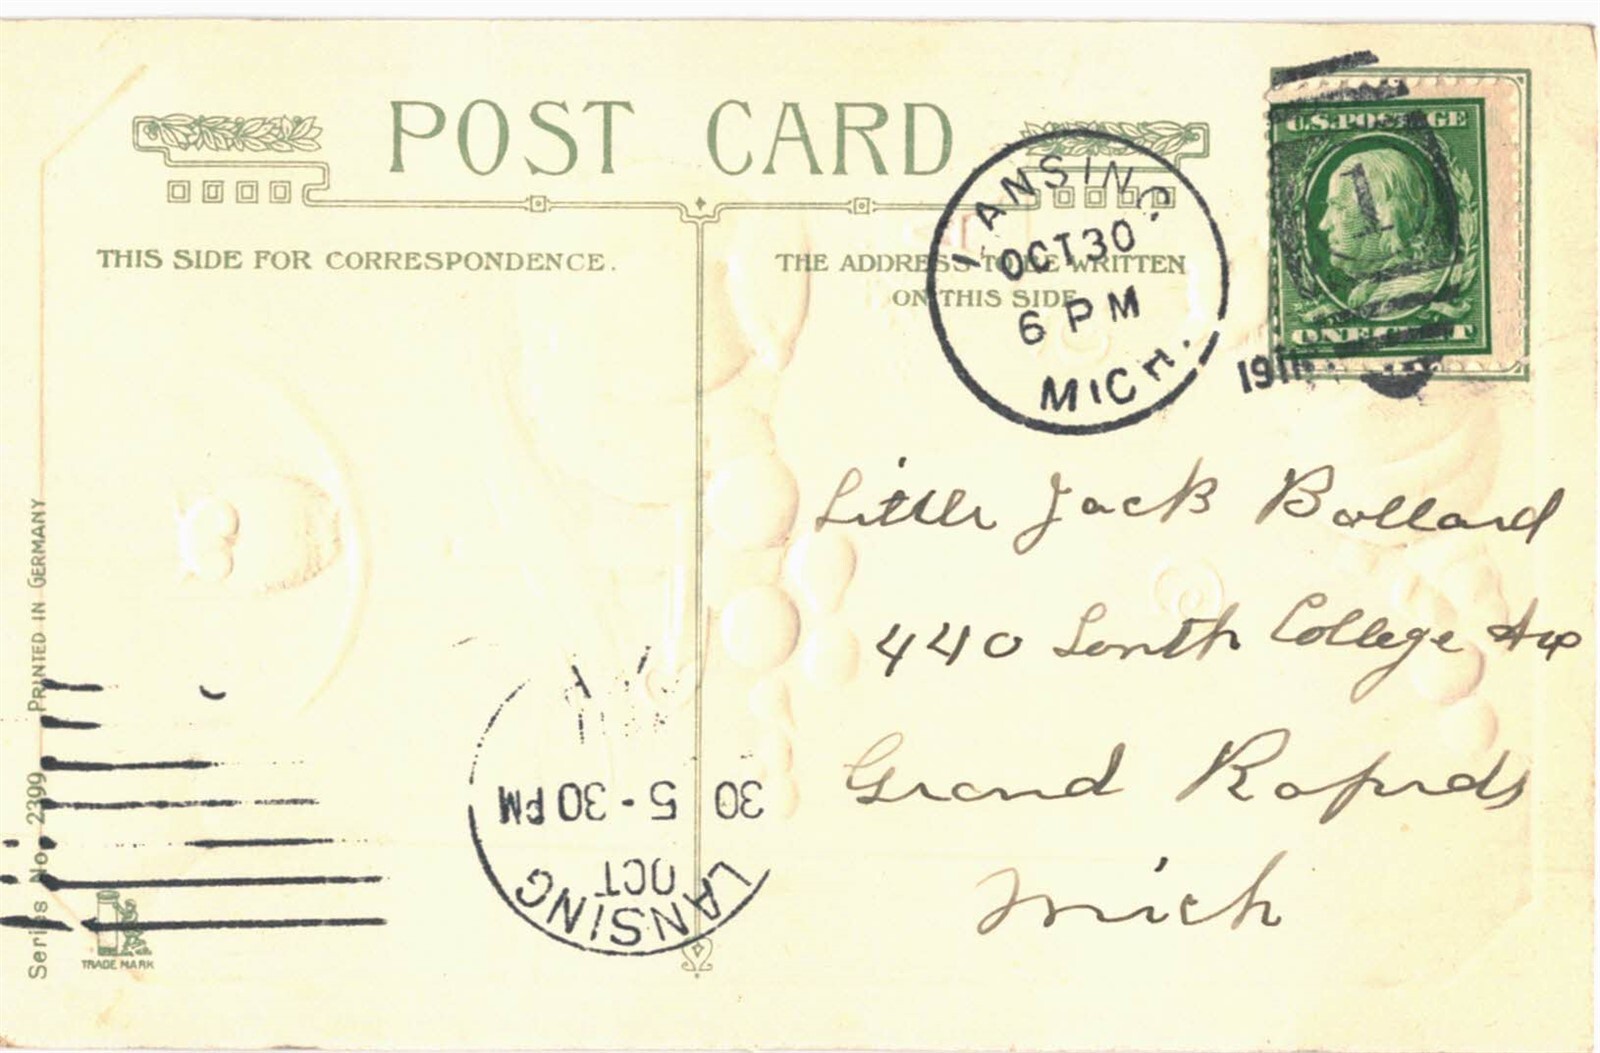 POST CARD
THIS SIDE FOR CORRESPONDENCE.
THE ADDRESS TO BE WRITTEN
ON THIS SIDE
LANSING
OCT 30
6 PM
MICH.
1911
U.S. POSTAGE
1
ONE CENT
Little Jack Bollard
440 South College Av
Grand Rapids
Mich
Series No. 2399 PRINTED IN GERMANY
TRADE MARK
LANSING
OCT
30 5-30 PM